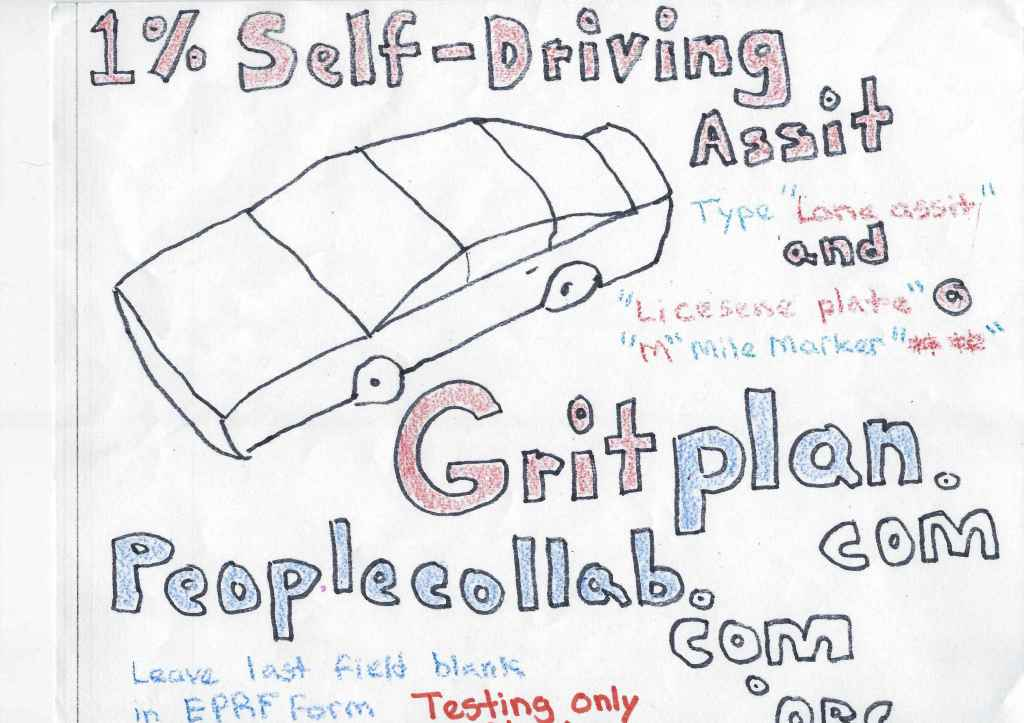 1% Self-Driving
Assit
Type "Lane assit"
and
"Licesene plate" @
"M" Mile Marker "** **"
Gritplan.
com
Peoplecollab.
com
Leave last field blank
.org
in EPRF Form Testing only